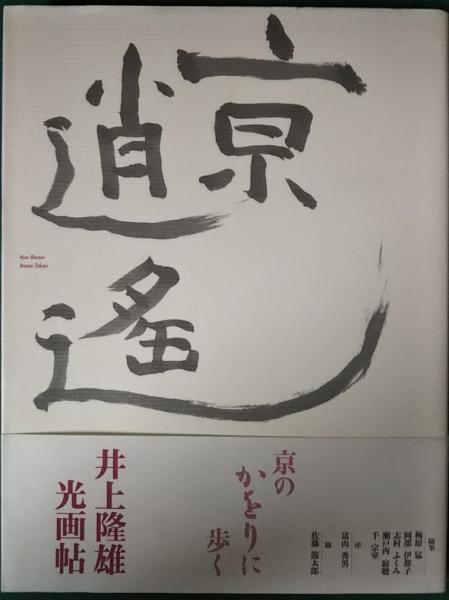 京
逍
遙
Kyo Shoyo
Inoue Takao
京の
かをりに
歩く
井上隆雄
光画帖
随筆
梅原 猛
岡部 伊都子
志村 ふくみ
瀬戸内 寂聴
千 宗室
序
富山 秀男
跋
佐藤 龍太郎